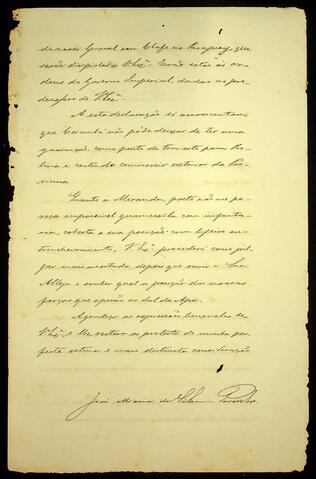 do nosso General em Chefe no Paraguay, que
serão dirigidas a V. Exª. Serão estas as or-
dens do Governo Imperial, dadas as pon-
derações de V. Exª
A esta declaração só accrescentarei
que Corumbá não póde deixar de ter uma
guarnição, como ponto de transito para Bo-
livia e centro do commercio exterior da Pro-
vincia.
Quanto a Miranda, posto não me pa-
reça impossivel guarnecel-a com infanta-
ria, coberta a sua posição com ligeiro en-
trincheiramento, V. Exª procederá como jul-
gar mais acertado, depois que ouvir a Sua
Alteza e souber qual a posição das nossas
forças que operão ao Sul do Apa.
Agradeço as expressões benevolas de
V. Exª, e lhe reitero os protestos de minha per-
feita estima e mais distincta consideração
José Maria da Silva Paranhos.